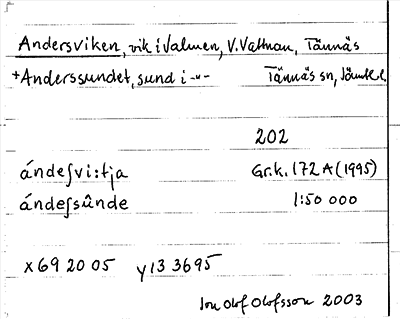 Andersviken, vik i Valmen, V. Vattnan, Tännäs
+Anderssundet, sund i -"- Tännäs sn, Jämtl. l.
202
ándeʃvi:tja Gr.k. 172 A (1995)
ándeʃsûnde 1:50 000
x69 20 05 y13 3695
Jon Olof Olofsson 2003